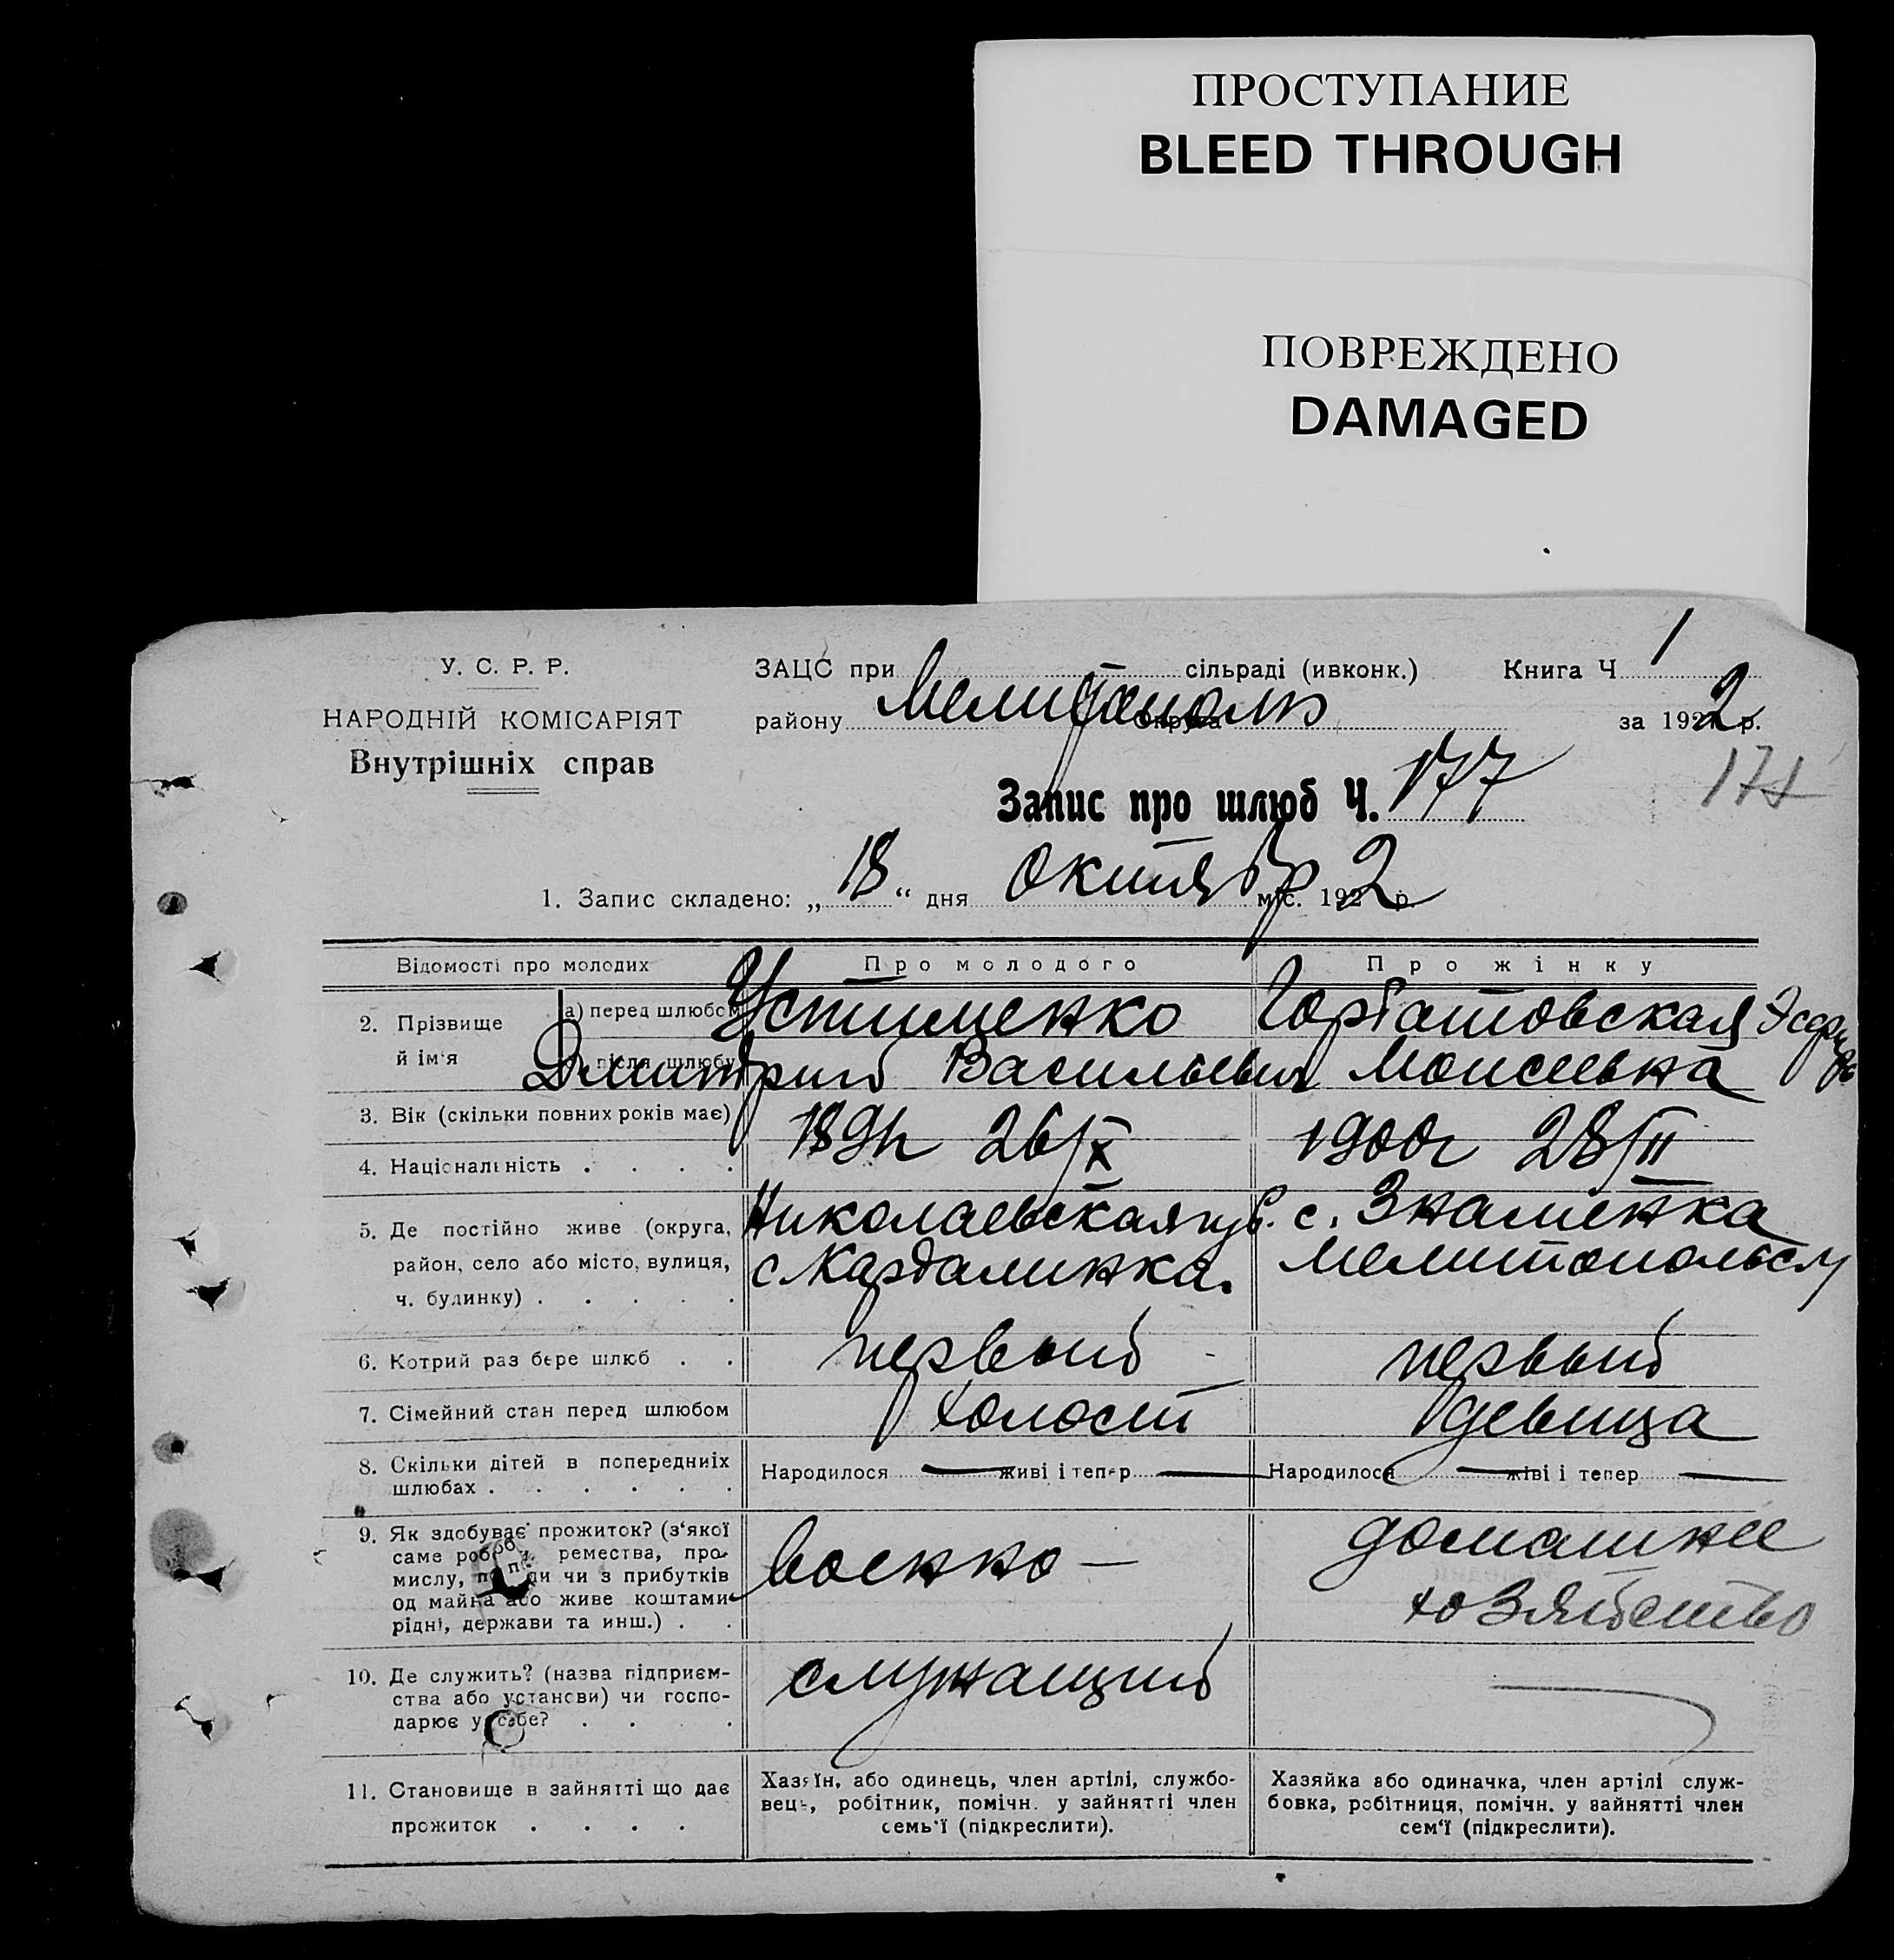 ПРОСТУПАНИЕ
BLEED THROUGH
ПОВРЕЖДЕНО
DAMAGED
У. С. Р. Р.
НАРОДНІЙ КОМІСАРІЯТ
Внутрішніх справ
ЗАЦС при сільраді (ивконк.) Книга Ч 1
району Мелитополь округа за 1922 р.
Запис про шлюб Ч. 177
1. Запис складено: „18“ дня октябр міс. 1922 р.
Відомості про молодих
Про молодого
Про жінку
2. Прізвище й ім'я
а) перед шлюбом
після шлюбу
Устименко
Дмитрий Васильевич
Горбатовская
Моисеевна
3. Вік (скільки повних років має)
4. Національність . . . .
26/X
1900г 28/II
5. Де постійно живе (округа,
район, село або місто, вулиця,
ч. будинку) . . . . .
Николаевская губ.
с. Кардаминка.
с. Знаменка
Мелитопольск у
6. Котрий раз бере шлюб . .
первый -
первый
7. Сімейний стан перед шлюбом
холост
девица
8. Скільки дітей в попередниіх
шлюбах . . . . . .
Народилося — живі і тепер —
Народилося — живі і тепер —
9. Як здобуває прожиток? (з'якої
саме ремества, про-
мислу, чи з прибутків
од майна або живе коштами
рідні, держави та инш.) . .
военно —
домашнее
хозяйство
10. Де служить? (назва підприєм-
ства або установи) чи госпо-
дарює у себе? . . .
служащий
11. Становище в зайнятті що дає
прожиток . . . .
Хазяїн, або одинець, член артілі, службо-
вець, робітник, помічн. у зайнятті член
семь'ї (підкреслити).
Хазяйка або одиначка, член артілі служ-
бовка, робітниця, помічн. у зайнятті член
сем'ї (підкреслити).